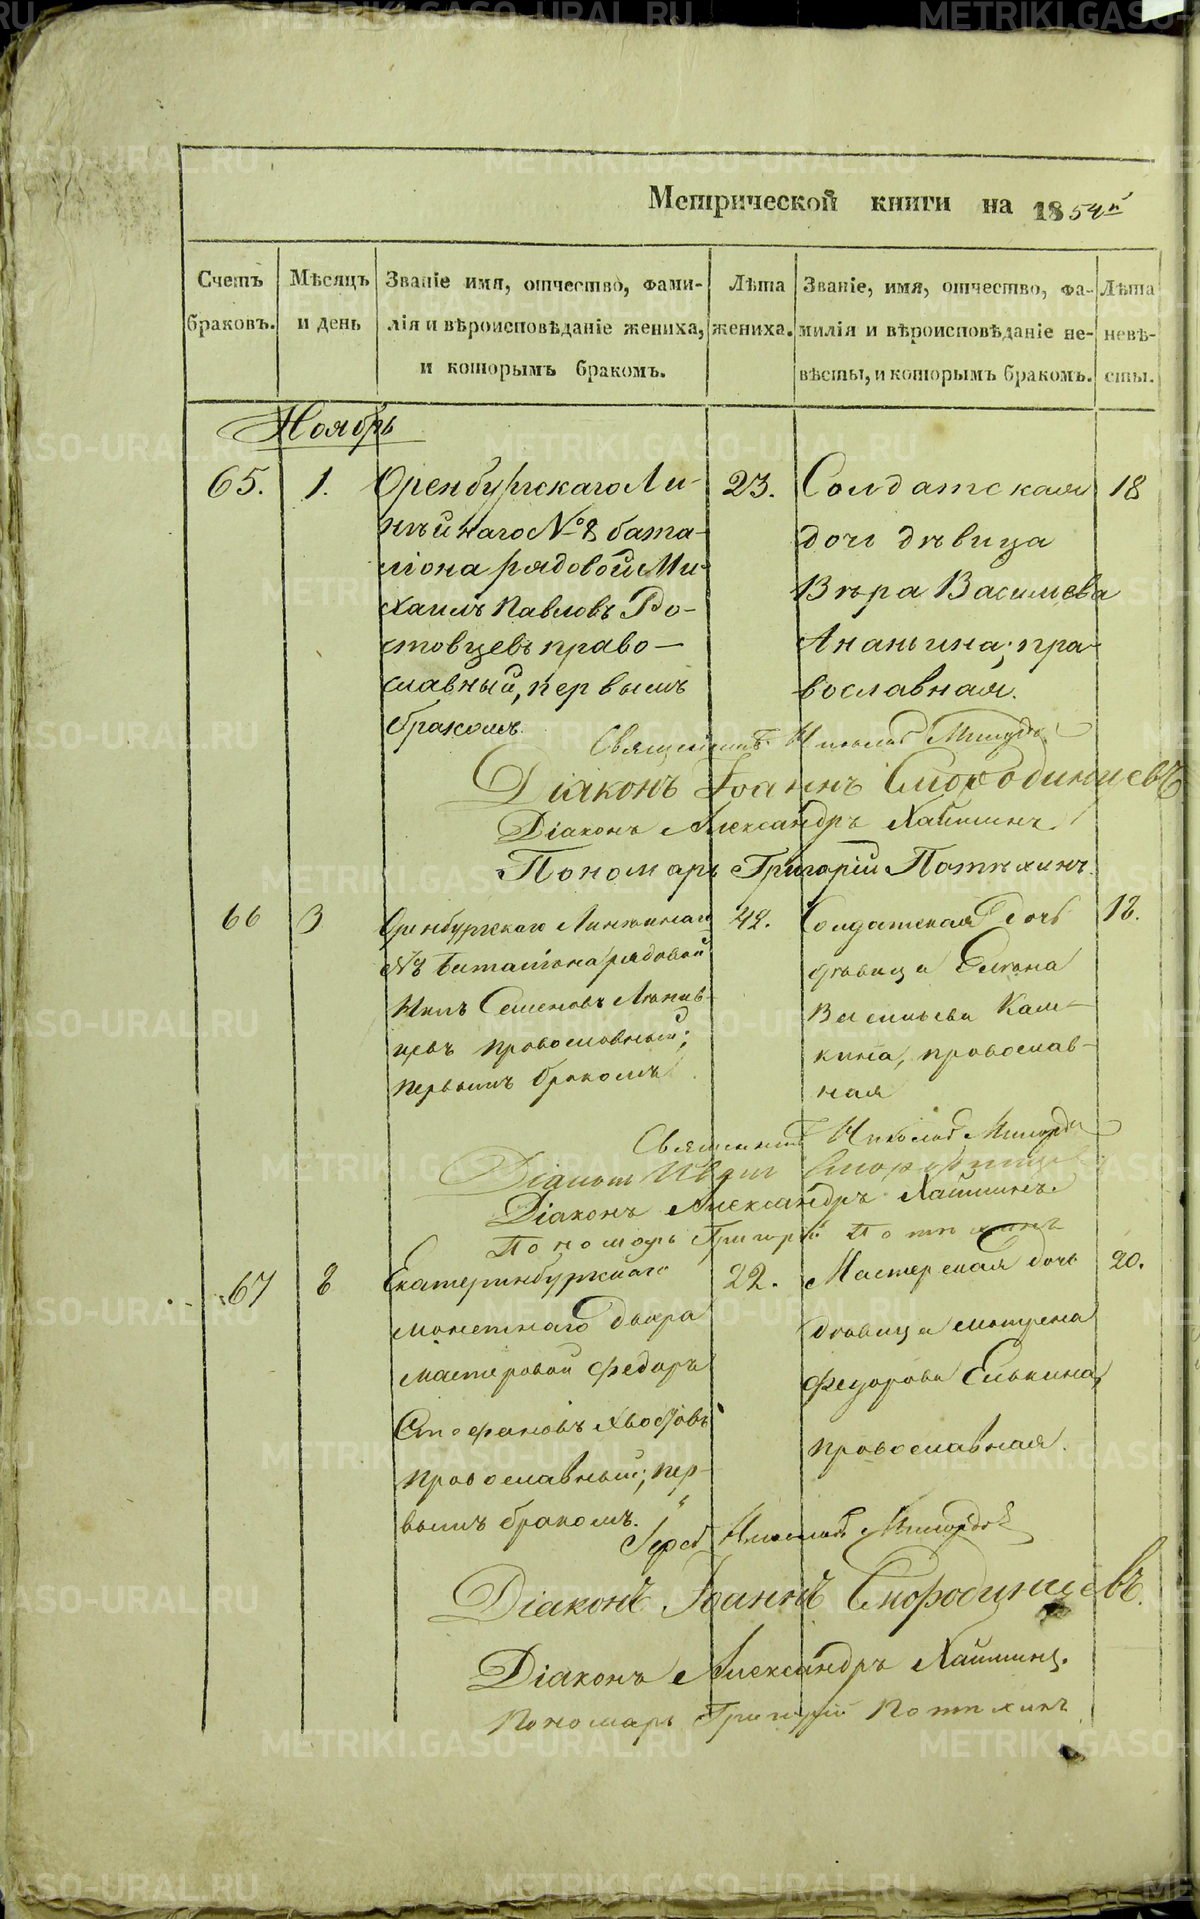 Метрической книги на 1854й
Счетъ браковъ.
Мѣсяцъ и день
Званіе имя, отчество, фами-
лія и вѣроисповѣданіе жениха,
и которымъ бракомъ.
Лѣта жениха.
Званіе, имя, отчество, фа-
милія и вѣроисповѣданіе не-
вѣсты, и которымъ бракомъ.
Лѣта невѣ-
сты.
Ноябрь
65.
1.
Оренбургскаго Ли-
нѣйнаго № 8 бата-
ліона рядовой Ми-
хаилъ Павловъ Ро-
стовцевъ право-
славный, первымъ
бракомъ.
23.
Солдатская
дочь дѣвица
Вѣра Васильева
Ананьина, пра-
вославная.
18
Священникъ Николай
Діаконъ Іоаннъ Смородинцевъ
Діаконъ Александръ Хайминъ
Пономарь Григорій Потѣхинъ.
66
3
Оренбургскаго Линѣйнаго
баталіона рядовой
Семеновъ
православный;
первымъ бракомъ
42.
Солдатская дочь
дѣвица Елена
Васильева Кал-
кина, православ-
ная
18.
Священникъ Николай
Діаконъ
Діаконъ Александръ Хайминъ.
Пономарь Григорій Потѣхинъ
67
8
Екатеринбургскаго
монетнаго двора
мастеровой Федоръ
Стефановъ Хвостовъ
православный; пер-
вымъ бракомъ.
22.
Мастерская дочь
дѣвица Матрена
Федорова Елькина,
православная.
20.
Іерей Николай
Діаконъ Іоаннъ Смородинцевъ.
Діаконъ Александръ Хайминъ.
Пономарь Григорій Потѣхинъ
METRIKI.GASO-URAL.RU